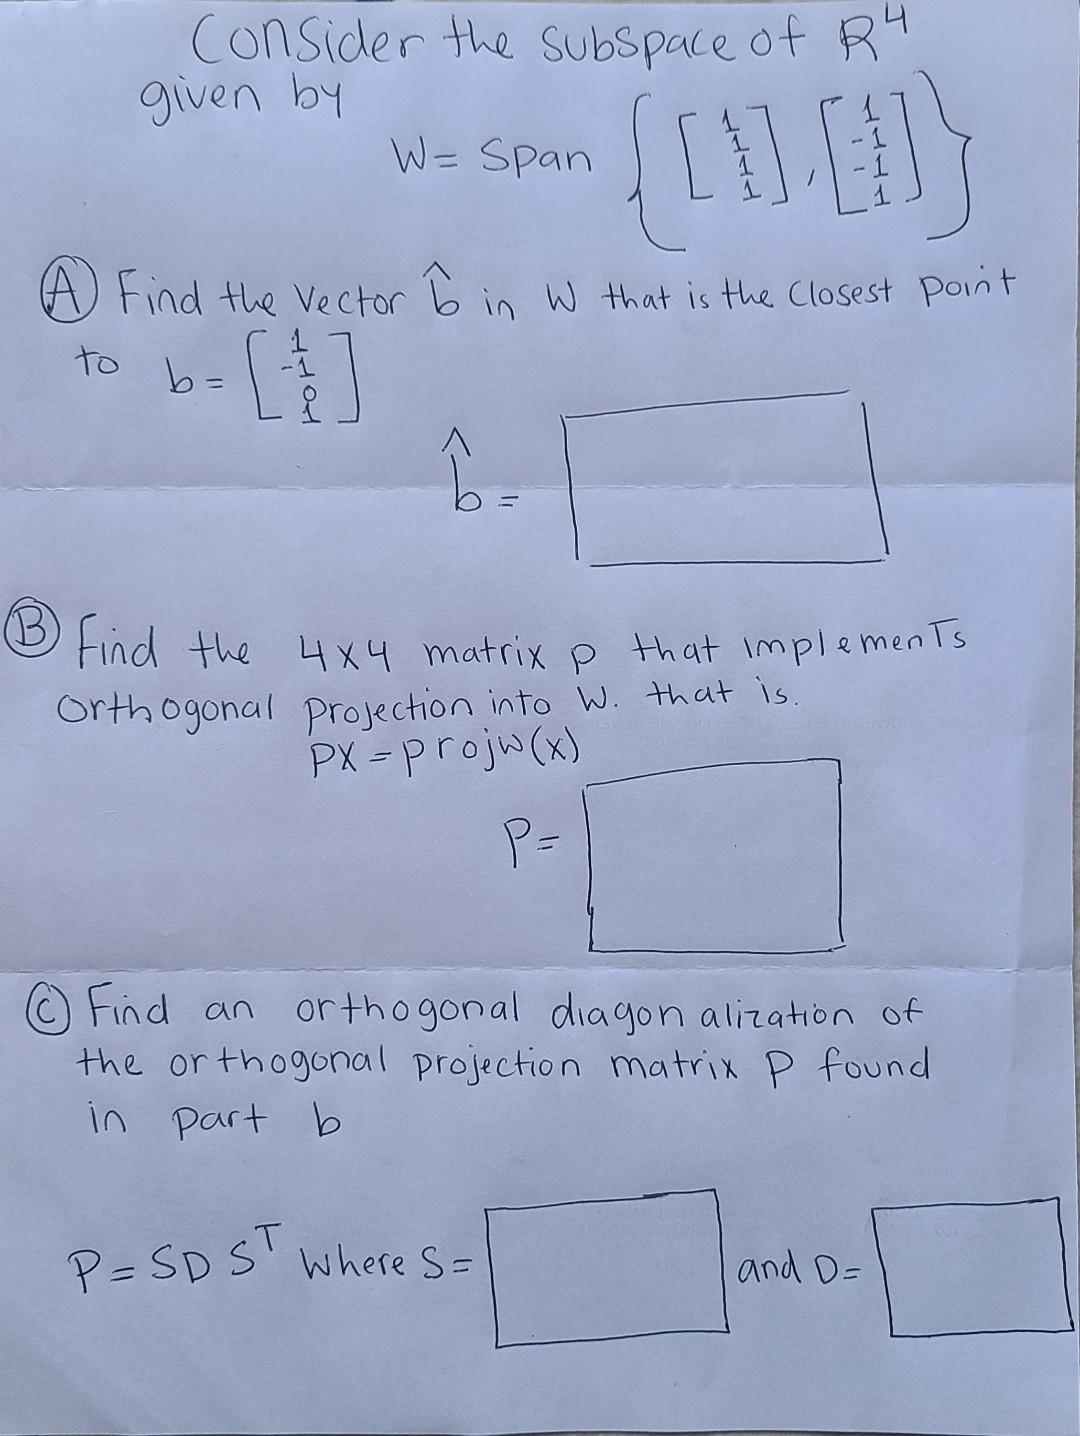 Consider the subspace of R⁴
given by
W= Span { [1 1 1 1], [1 -1 -1 1] }
Ⓐ Find the vector b̂ in W that is the closest point
to b= [1 -1 0 1]
b̂ =
Ⓑ Find the 4x4 matrix p that implements
orthogonal projection into W. that is.
PX = projw(x)
P=
Ⓒ Find an orthogonal diagonalization of
the orthogonal projection matrix P found
in part b
P = SD Sᵀ where S= and D=